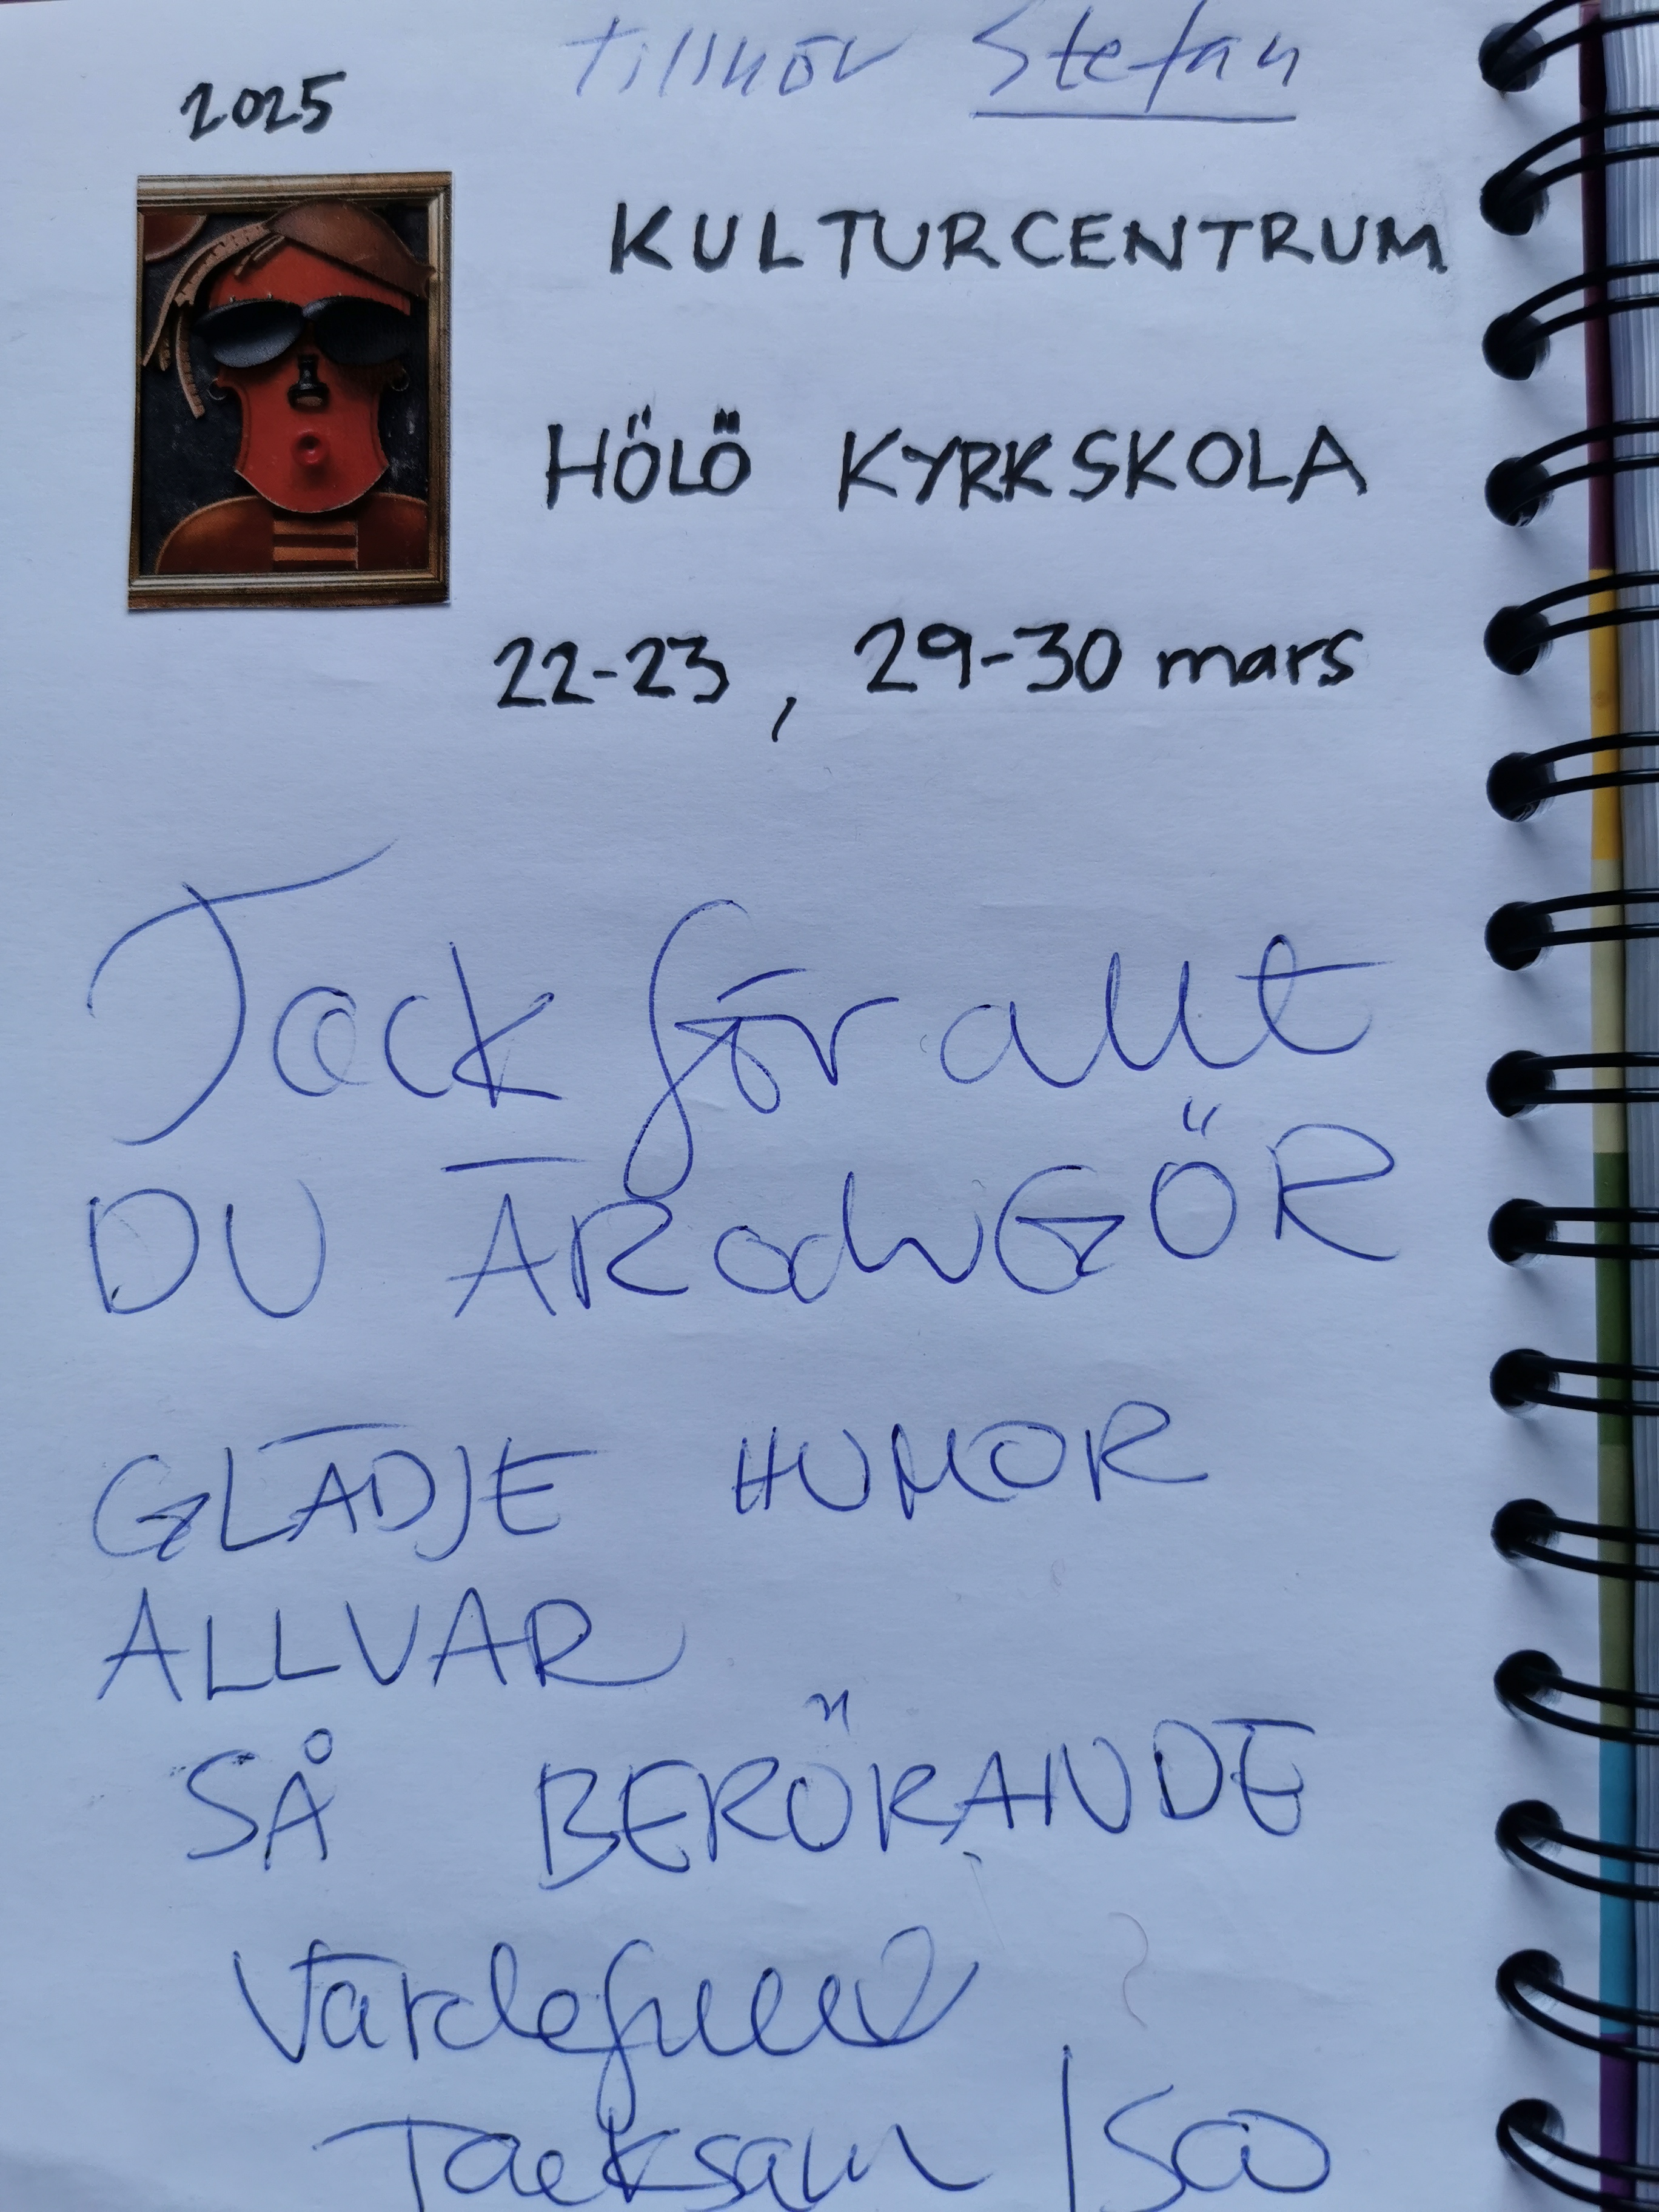 Tillhör Stefan
2025
KULTURCENTRUM
HÖLÖ KYRKSKOLA
22-23, 29-30 mars
Tack för allt
DU ÄR och GÖR
GLÄDJE HUMOR
ALLVAR
SÅ BERÖRANDE
Värdefull
Tacksam